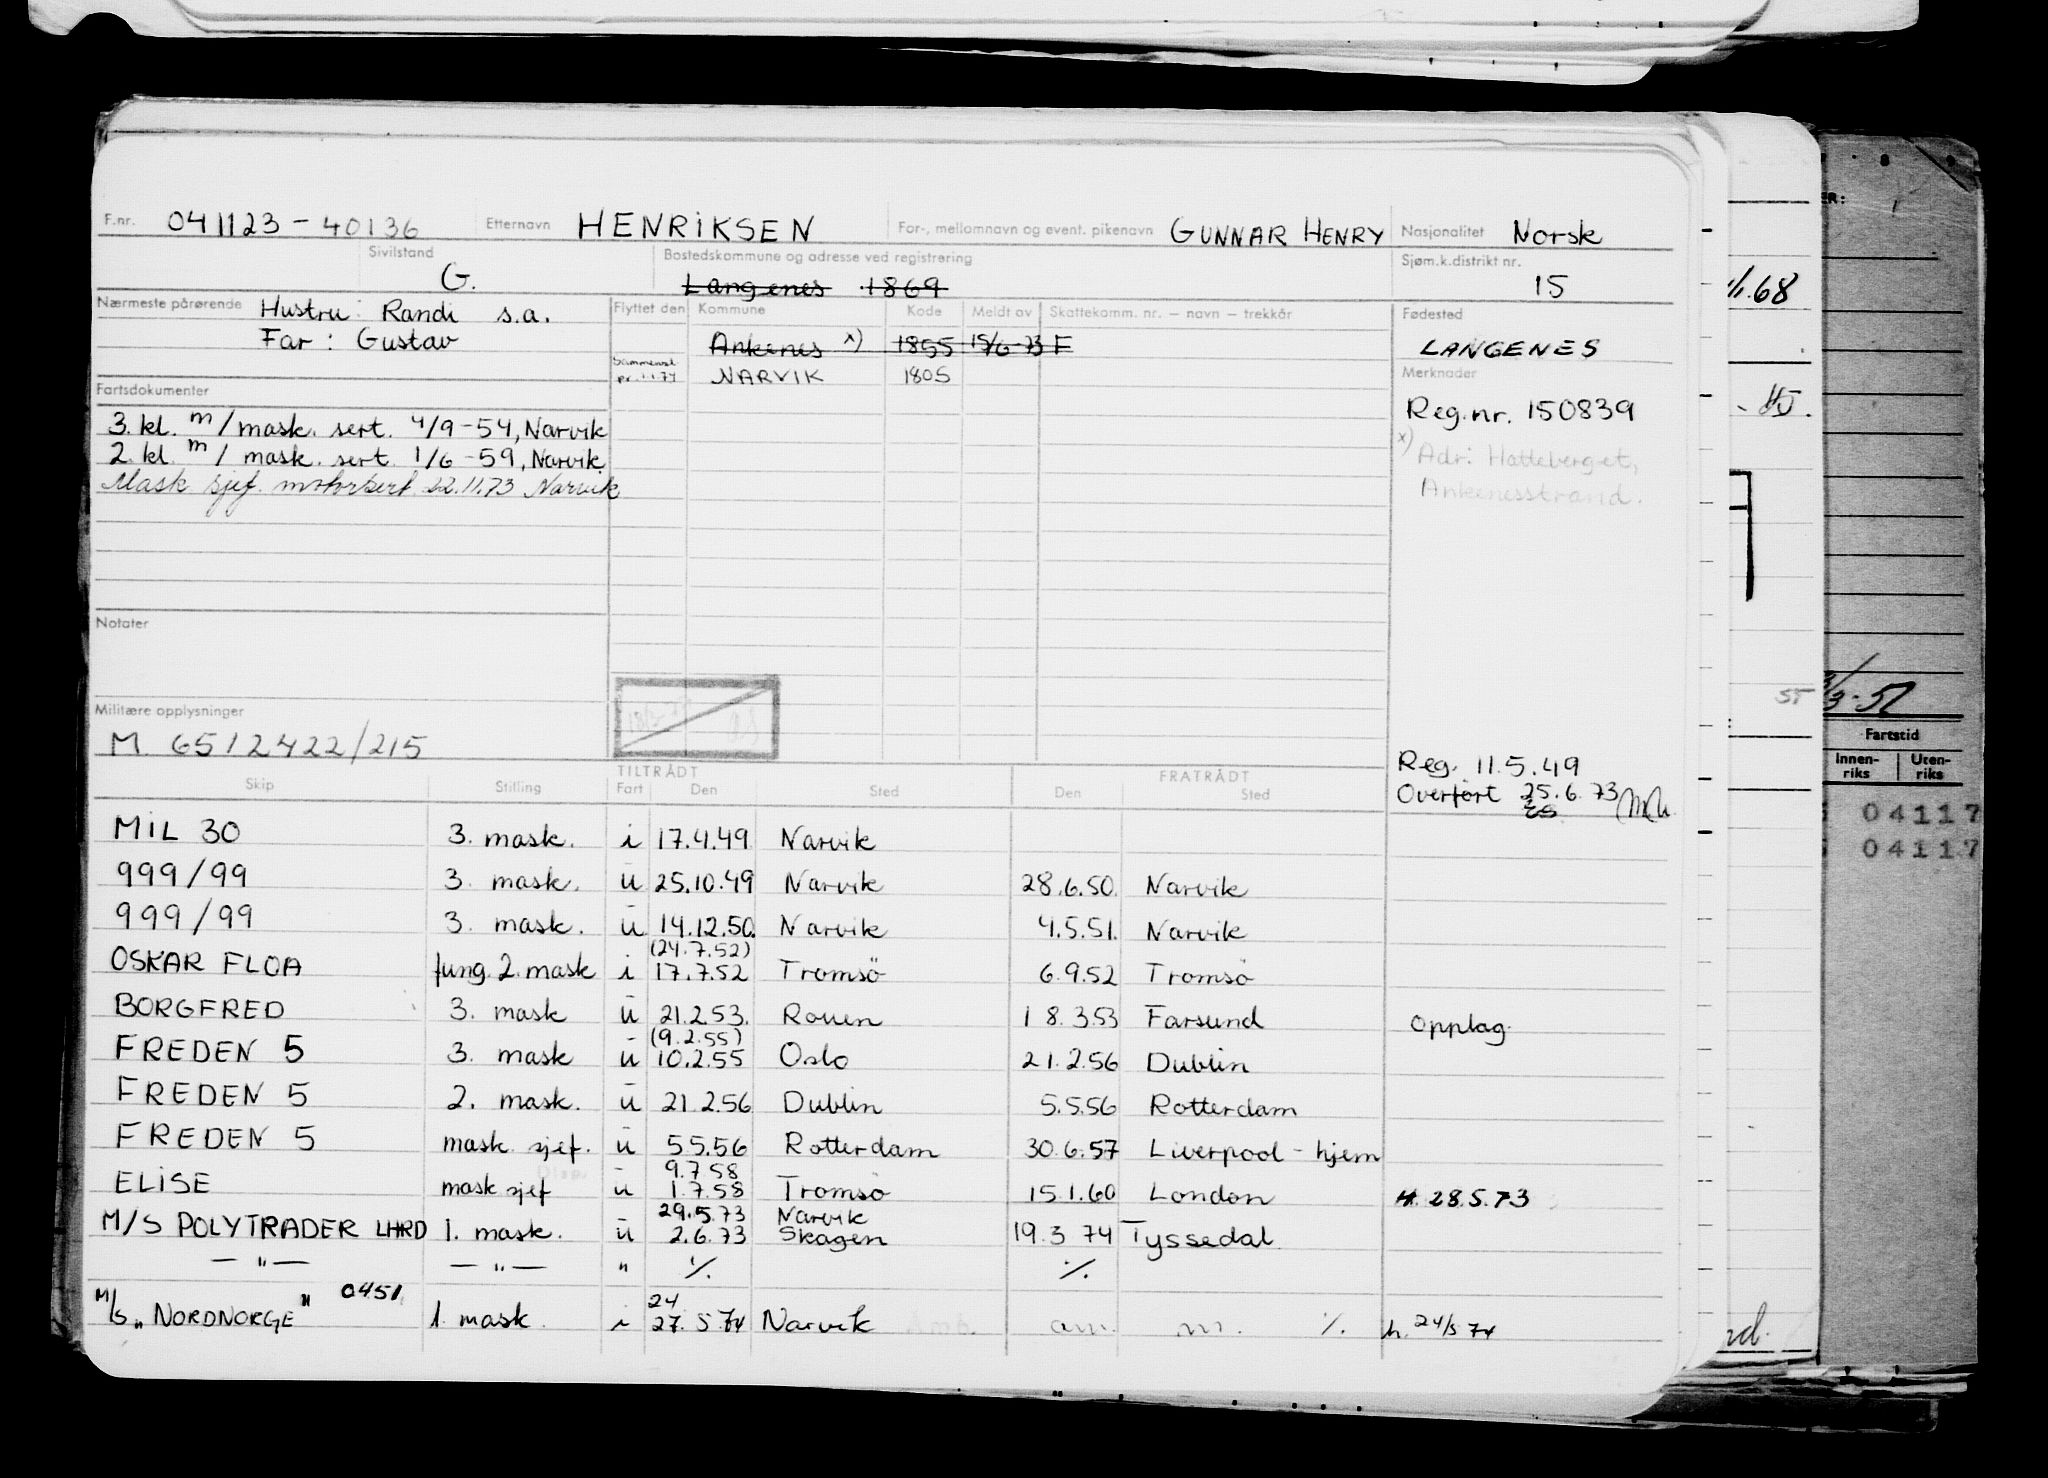 F.nr. 041123-40136 Etternavn HENRIKSEN For-, mellomnavn og event. pikenavn GUNNAR HENRY Nasjonalitet Norsk
Sivilstand G. Bostedskommune og adresse ved registrering Langenes 1869 Sjøm.k.distrikt nr. 15
Nærmeste pårørende Hustru: Randi s.a.
Far: Gustav
Flyttet den Kommune Kode Meldt av Skattekomm. nr. – navn – trekkår
Ankenes x) 1855 15/6-73 F
Sammensl. pr. 1.1.74 NARVIK 1805
Fødested
LANGENES
Merknader
Reg.nr. 150839
x) Adr: Hatteberget,
Ankenesstrand.
Fartsdokumenter
3. kl. m/mask. sert. 4/9-54, Narvik
2. kl. m/mask. sert. 1/6-59, Narvik
Mask sjef. motorsert 22.11.73 Narvik
Notater
Militære opplysninger
M 6512422/215
Reg. 11.5.49
Overført 25.6.73
TILTRÅDT FRATRÅDT
Skip Stilling Fart Den Sted Den Sted
MIL 30 3. mask. i 17.4.49 Narvik
999/99 3. mask. u 25.10.49 Narvik 28.6.50. Narvik
999/99 3. mask. u 14.12.50. Narvik 4.5.51. Narvik
(24.7.52)
OSKAR FLOA fung. 2. mask i 17.7.52 Tromsö 6.9.52 Tromsö
BORGFRED 3. mask u 21.2.53. Rouen 18.3.53 Farsund Opplag.
(9.2.55)
FREDEN 5 3. mask u 10.2.55 Oslo 21.2.56 Dublin
FREDEN 5 2. mask. u 21.2.56 Dublin 5.5.56 Rotterdam
FREDEN 5 mask sjef. u 5.5.56 Rotterdam 30.6.57 Liverpool - hjem
9.7.58
ELISE mask sjef u 1.7.58 Tromsö 15.1.60 London H. 28.5.73
29.5.73 Narvik
M/S POLYTRADER LHRD 1. mask. u 2.6.73 Skagen 19.3 74 Tyssedal
— " — — " — " ./. ./.
24
M/S „NORDNORGE" 0451 1. mask. i 27.5.74 Narvik Amb. am. m. ./. h. 24/5 74
/1.68
55
3/3-57
Fartstid
Innen-riks Uten-riks
04117
04117